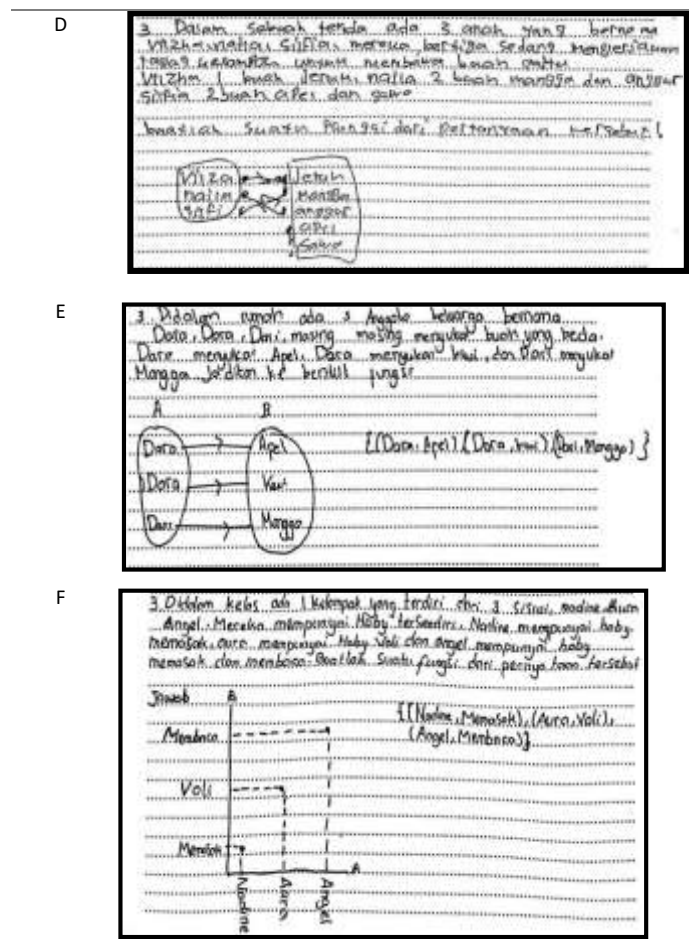 D
3. Dalam sebuah tenda ada 3 anak yang bernama
Vhizha, nalia, Silfia, mereka bertiga sedang mengerjakan
tugas kelompok untuk membawa buah
Vhizha 1 buah Jeruk, nalia 2 buah mangga dan anggur
Silfia 2 buah apel dan sawo
buatlah suatu fungsi dari pertanyaan tersebut!
nalia
Jeruk
mangga
anggur
apel
Sawo
E
3. Didalam rumah ada 3 Anggota keluarga bernama
Dara, Dora, Dani, masing masing menyukai buah yang beda.
Dara menyukai Apel, Dora menyukai kiwi, dan Dani menyukai
Mangga Jadikan ke bentuk fungsi
A B
Dara Apel {(Dara, Apel) (Dora, kiwi) (Dani, Mangga)}
Dora
Dani Mangga
F
3. Didalam kelas ada 1 kelompok yang terdiri dari 3 siswi, nadine Aura
Angel. Mereka mempunyai Hoby tersendiri. Nadine mempunyai hoby
memasak, aura mempunyai Hoby Voli dan angel mempunyai hoby
memasak dan membaca. Buatlah suatu fungsi dari pernyataan tersebut
Jawab B
{(Nadine, Memasak), (Aura, Voli),
Membaca (Angel, Membaca)}
Voli
Memasak
A
Nadine
Aura
Angel